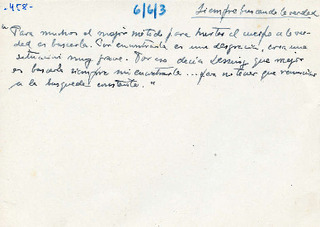 -458-
6/6/3
Siempre buscando la verdad
"Para muchos el mejor método para hurtar el cuerpo a la ver-
dad es buscarla. Con encontrarla es una desgracia, crea una
situación muy grave. Por eso decía Lessing que mejor
es buscarla siempre sin encontrarla... para no tener que renunciar
a la busqueda constante."